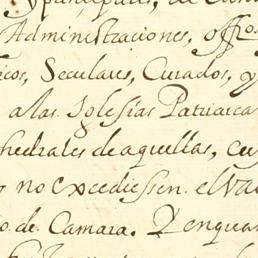 y principales, de
Administraciones, offos.
icos, Seculares, Curados, y
a las Iglesias Patriarca
hedrales de aquellas, cu
no excediessen el va
o de Camara. Y en quan